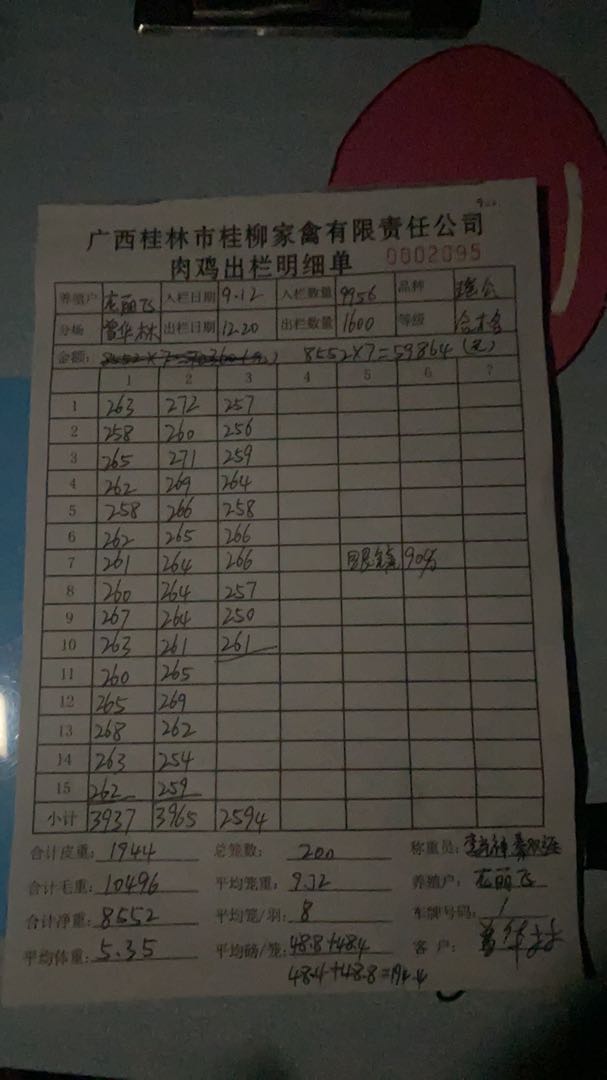 广西桂林市桂柳家禽有限责任公司
肉鸡出栏明细单 0002095
养殖户 龙丽飞 入栏日期 9.12 入栏数量 9956 品种
分场 曾华林 出栏日期 12.20 出栏数量 1600 等级
金额: 8552×7=59864(元)
1 2 3 4 5 6 7
1 263 272 257
2 258 260 256
3 265 271 259
4 262 269 264
5 258 266 258
6 262 265 266
7 261 264 266 90%
8 260 264 257
9 267 264 250
10 263 261 261
11 260 265
12 265 269
13 268 262
14 263 254
15 262 259
小计 3937 3965 2594
合计皮重: 1944 总笼数: 200 称重员:
合计毛重: 10496 平均笼重: 9.72 养殖户: 龙丽飞
合计净重: 8552 平均笼/羽: 8 车牌号码: /
平均体重: 5.35 平均磅/笼: 48.8+48.4 客户: 曾华林
48.4+48.8=194.4